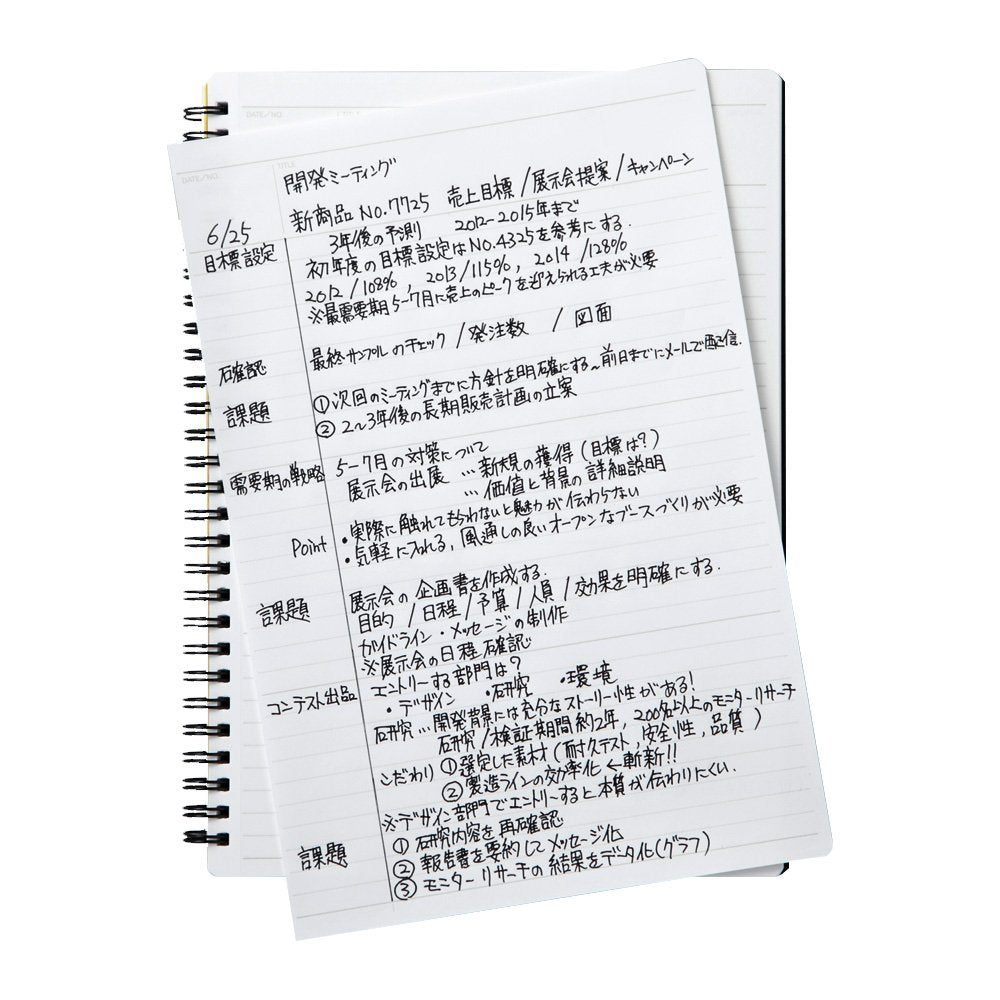 DATE/NO.
DATE/NO.
TITLE
開発ミーティング
6/25 新商品 No.7725 売上目標/展示会提案/キャンペーン
目標設定 3年後の予測 2012-2015年まで
初年度の目標設定はNO.4325を参考にする.
2012/108%, 2013/115%, 2014/128%
※最需要期5-7月に売上のピークを迎えられる工夫が必要
確認 最終サンプルのチェック/発注数 /図面
課題 ①次回のミーティングまでに方針を明確にする~前日までにメールで配信.
② 2~3年後の長期販売計画の立案
需要期の戦略 5-7月の対策について
展示会の出展 …新規の獲得(目標は?)
…価値と背景の詳細説明
Point ・実際に触れてもらわないと魅力が伝わらない
・気軽に入れる, 風通しの良いオープンなブースづくりが必要
課題 展示会の企画書を作成する.
目的/日程/予算/人員/効果を明確にする.
ガイドライン・メッセージの制作
※展示会の日程確認
コンテスト出品 エントリーする部門は?
・デザイン ・研究 ・環境
研究…開発背景には充分なストーリー性がある!
研究/検証期間約2年, 200名以上のモニターリサーチ
こだわり ①選定した素材(耐久テスト, 安全性, 品質)
②製造ラインの効率化 ←斬新!!
※デザイン部門でエントリーすると本質が伝わりにくい.
課題 ① 研究内容を再確認
② 報告書を要約してメッセージ化
③ モニターリサーチの結果をデータ化(グラフ)